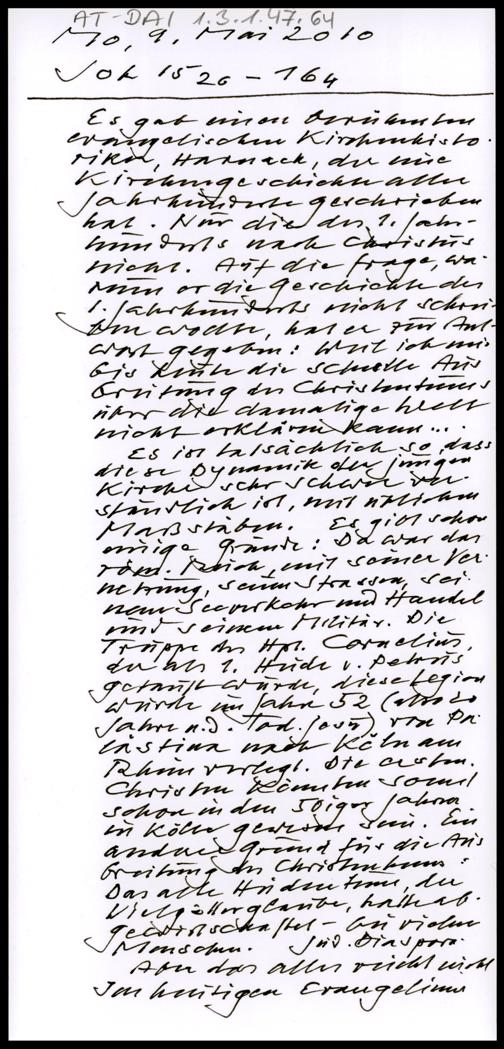 AT-DAI 1.3.1.47.64
Mo, 9. Mai 2010
Joh 15 26 - 16 4
Es gab einen berühmten
evangelischen Kirchenhisto-
riker, Harnack, der eine
Kirchengeschichte aller
Jahrhunderte geschrieben
hat. Nur die des 1. Jahr-
hunderts nach Christus
nicht. Auf die Frage, wa-
rum er die Geschichte des
1. Jahrhunderts nicht schrei-
ben wollte, hat er zur Ant-
wort gegeben: Weil ich mir
bis heute die schnelle Aus
breitung des Christentums
über die damalige Welt
nicht erklären kann...
Es ist tatsächlich so, dass
diese Dynamik der jungen
Kirche sehr schwer ver-
ständlich ist, mit üblichen
Maßstäben. Es gibt schon
einige Gründe: Da war das
röm. Reich, mit seiner Ver-
netzung, seinen Strassen, sei-
nem Seeverkehr und Handel
und seinem Militär. Die
Truppe des Hpt. Cornelius,
der als 1. Heide v. Petrus
getauft wurde, diese Legion
wurde im Jahre 52 (also 20
Jahre n.d. Tod Jesu) von Pa
lästina nach Köln am
Rhein verlegt. Die ersten
Christen könnten somit
schon in den 50iger Jahren
in Köln gewesen sein. Ein
anderer Grund für die Aus
breitung des Christentums:
Das alte Heidentum, der
Vielgötterglaube, hatte ab-
gewirtschaftet - bei vielen
Menschen. Jüd. Diaspora.
Aber das alles reicht nicht
Im heutigen Evangelium